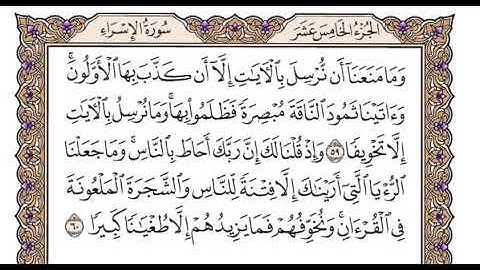 سُورَةُ الإِسْرَاءِ
الجُزْءُ الخَامِسَ عَشَرَ
وَمَا مَنَعَنَآ أَن نُّرْسِلَ بِٱلْأٓيَٰتِ إِلَّآ أَن كَذَّبَ بِهَا ٱلْأَوَّلُونَۚ
وَءَاتَيْنَا ثَمُودَ ٱلنَّاقَةَ مُبْصِرَةً فَظَلَمُوا۟ بِهَاۚ وَمَا نُرْسِلُ بِٱلْأٓيَٰتِ
إِلَّا تَخْوِيفًا ٥٩ وَإِذْ قُلْنَا لَكَ إِنَّ رَبَّكَ أَحَاطَ بِٱلنَّاسِۚ وَمَا جَعَلْنَا
ٱلرُّءْيَا ٱلَّتِىٓ أَرَيْنَٰكَ إِلَّا فِتْنَةً لِّلنَّاسِ وَٱلشَّجَرَةَ ٱلْمَلْعُونَةَ
فِى ٱلْقُرْءَانِۚ وَنُخَوِّفُهُمْ فَمَا يَزِيدُهُمْ إِلَّا طُغْيَٰنًا كَبِيرًا ٦٠